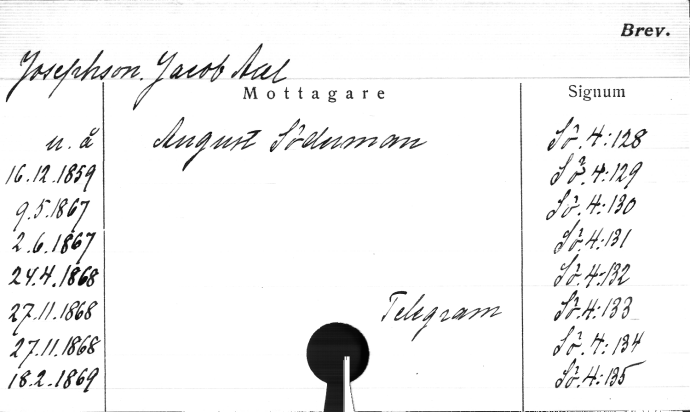 Brev.
Josephson, Jacob Axel
Mottagare Signum
u. å August Söderman Sö. 4:128
16.12.1859 Sö. 4:129
9.5.1867 Sö. 4:130
2.6.1867 Sö. 4:131
24.4.1868 Sö. 4:132
27.11.1868 Telegram Sö. 4:133
27.11.1868 Sö. 4:134
18.2.1869 Sö. 4:135